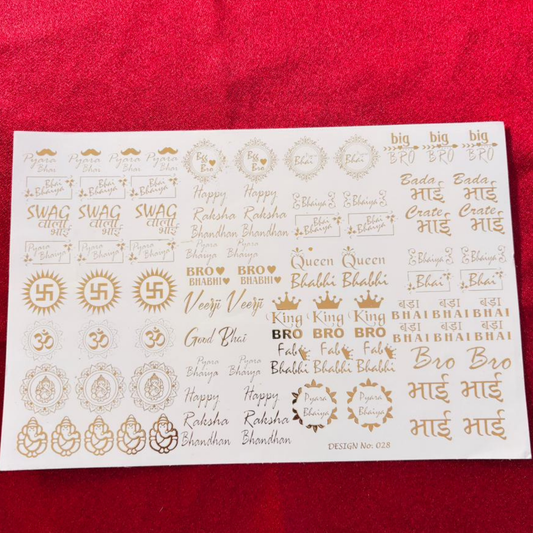 Pyara Pyara Pyara Pyara
Bhai Bhai Bhai Bhai
Bhai Bhai Bhai
Bhaiya Bhaiya Bhaiya
SWAG SWAG SWAG
वाला वाला वाला
भाई भाई भाई
Pyara Pyara Pyara
Bhaiya Bhaiya Bhaiya
卐 卐 卐
ॐ ॐ ॐ
Big Big
Bro Bro
Happy Happy
Raksha Raksha
Bhandhan Bhandhan
Pyara Pyara
Bhaiya Bhaiya
BRO BRO
BHABHI BHABHI
Veerji Veerji
Good Bhai
Pyara Pyara
Bhaiya Bhaiya
Happy Happy
Raksha Raksha
Bhandhan Bhandhan
Bhai Bhai
Bhaiya Bhaiya
Bhai Bhai
Bhaiya Bhaiya
Queen Queen
Bhabhi Bhabhi
King King King
BRO BRO BRO
Fab Fab Fab
Bhabhi Bhabhi Bhabhi
Pyara Pyara
Bhaiya Bhaiya
big big big
BRO BRO BRO
Bada Bada
भाई भाई
Crate Crate
भाई भाई
Bhaiya Bhaiya
Bhai Bhai
बडा बडा बडा
BHAI BHAI BHAI
बडा बडा बडा
BHAI BHAI BHAI
Bro Bro
भाई भाई
भाई भाई
DESIGN No. 028